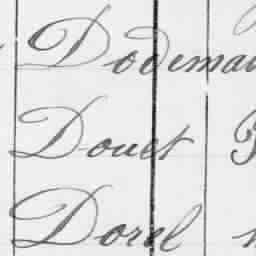 Dodeman
Douet
Dorel